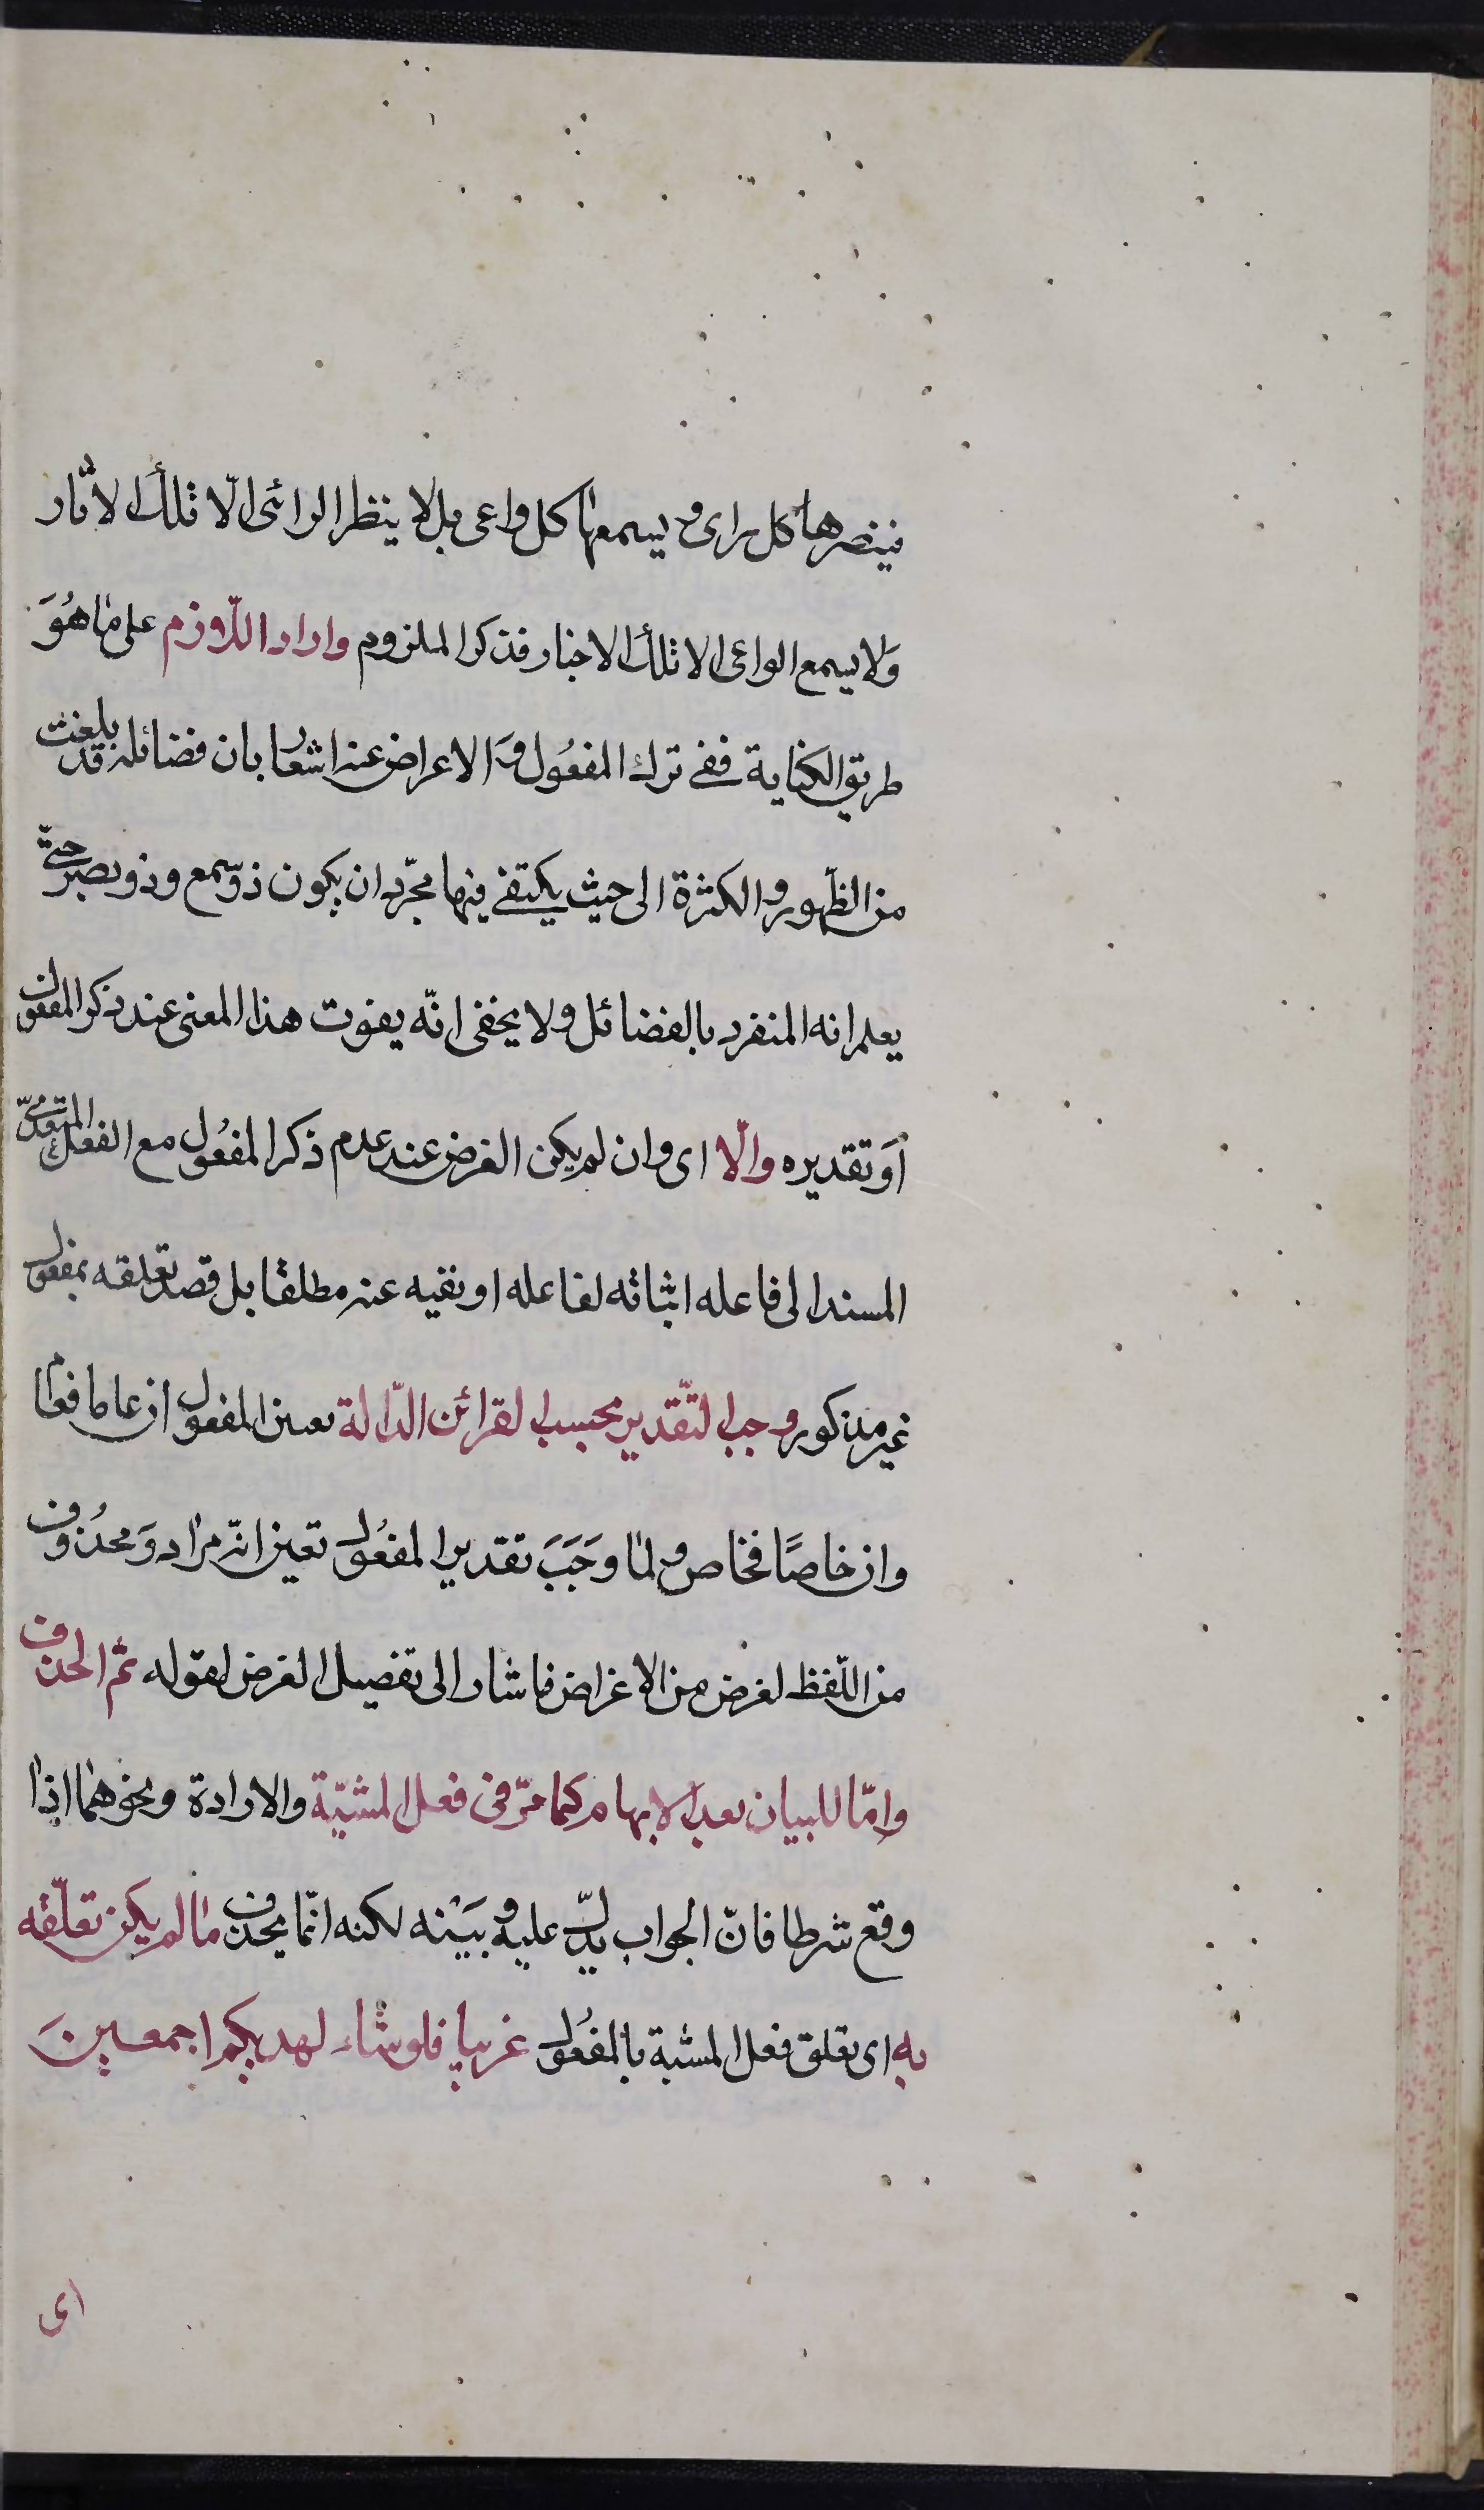 فينصرها كل راى و يسمعها كل واعى بل لا ينظر الرائى الّا تلك الاثار
وَلا يسمع الواعى الا تلك الاخبار فذكر الملزوم واراد اللّازم على ما هُوَ
طريق الكناية ففى ترك المفعُول وَ الاعراض عنه اشعار بان فضائله قد بلغت
من الظّهور و الكثرة الى حيث يكتفى فيها مجرّد ان يكون ذو سمع و ذو بصر حتّى
يعلم انه المنفرد بالفضائل ولا يخفى انّه يفوت هذا المعنى عند ذكر المفعول
اَو تقديره والّا اى وان لم يكن الغرض عند عدم ذكر المفعُول مع الفعل المتعدّى
المسند الى فاعله اثباته لفاعله او نفيه عنه مطلقا بل قصد تعلقه بمفعول
غير مذكور وجب التّقدير بحسب القرائن الدّالة تعين المفعول ان عاما فعاما
وان خاصًا فخاص و لما وَجَبَ تقدير المفعُول تعين انّه مراد وَ محذُوف
من اللّفظ لغرض من الاغراض فاشار الى تفصيل الغرض لقوله ثم الحذف
وامّا للبيان بعد الابهام كما مرّ فى فعل المشيّة والارادة و نحوهما اذا
وقع شرطا فانّ الجواب يدلّ عليه و بَيَنه لكنه انّما يحذف ما لم يكن تعلّقه
به اى تعلق فعل المشية بالمفعُول غريبا فلو شاء لهديكم اجمعينَ
اى